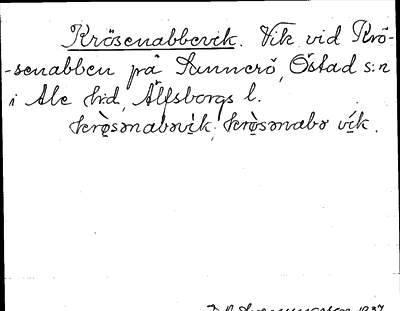 Krösenabbevik. Vik vid Krö-
-senabben på Sunnerö, Östad s:n
i Ale h:d, Älfsborgs l.
krø̀sənabəvík, krø̀sənabə vík.
1937